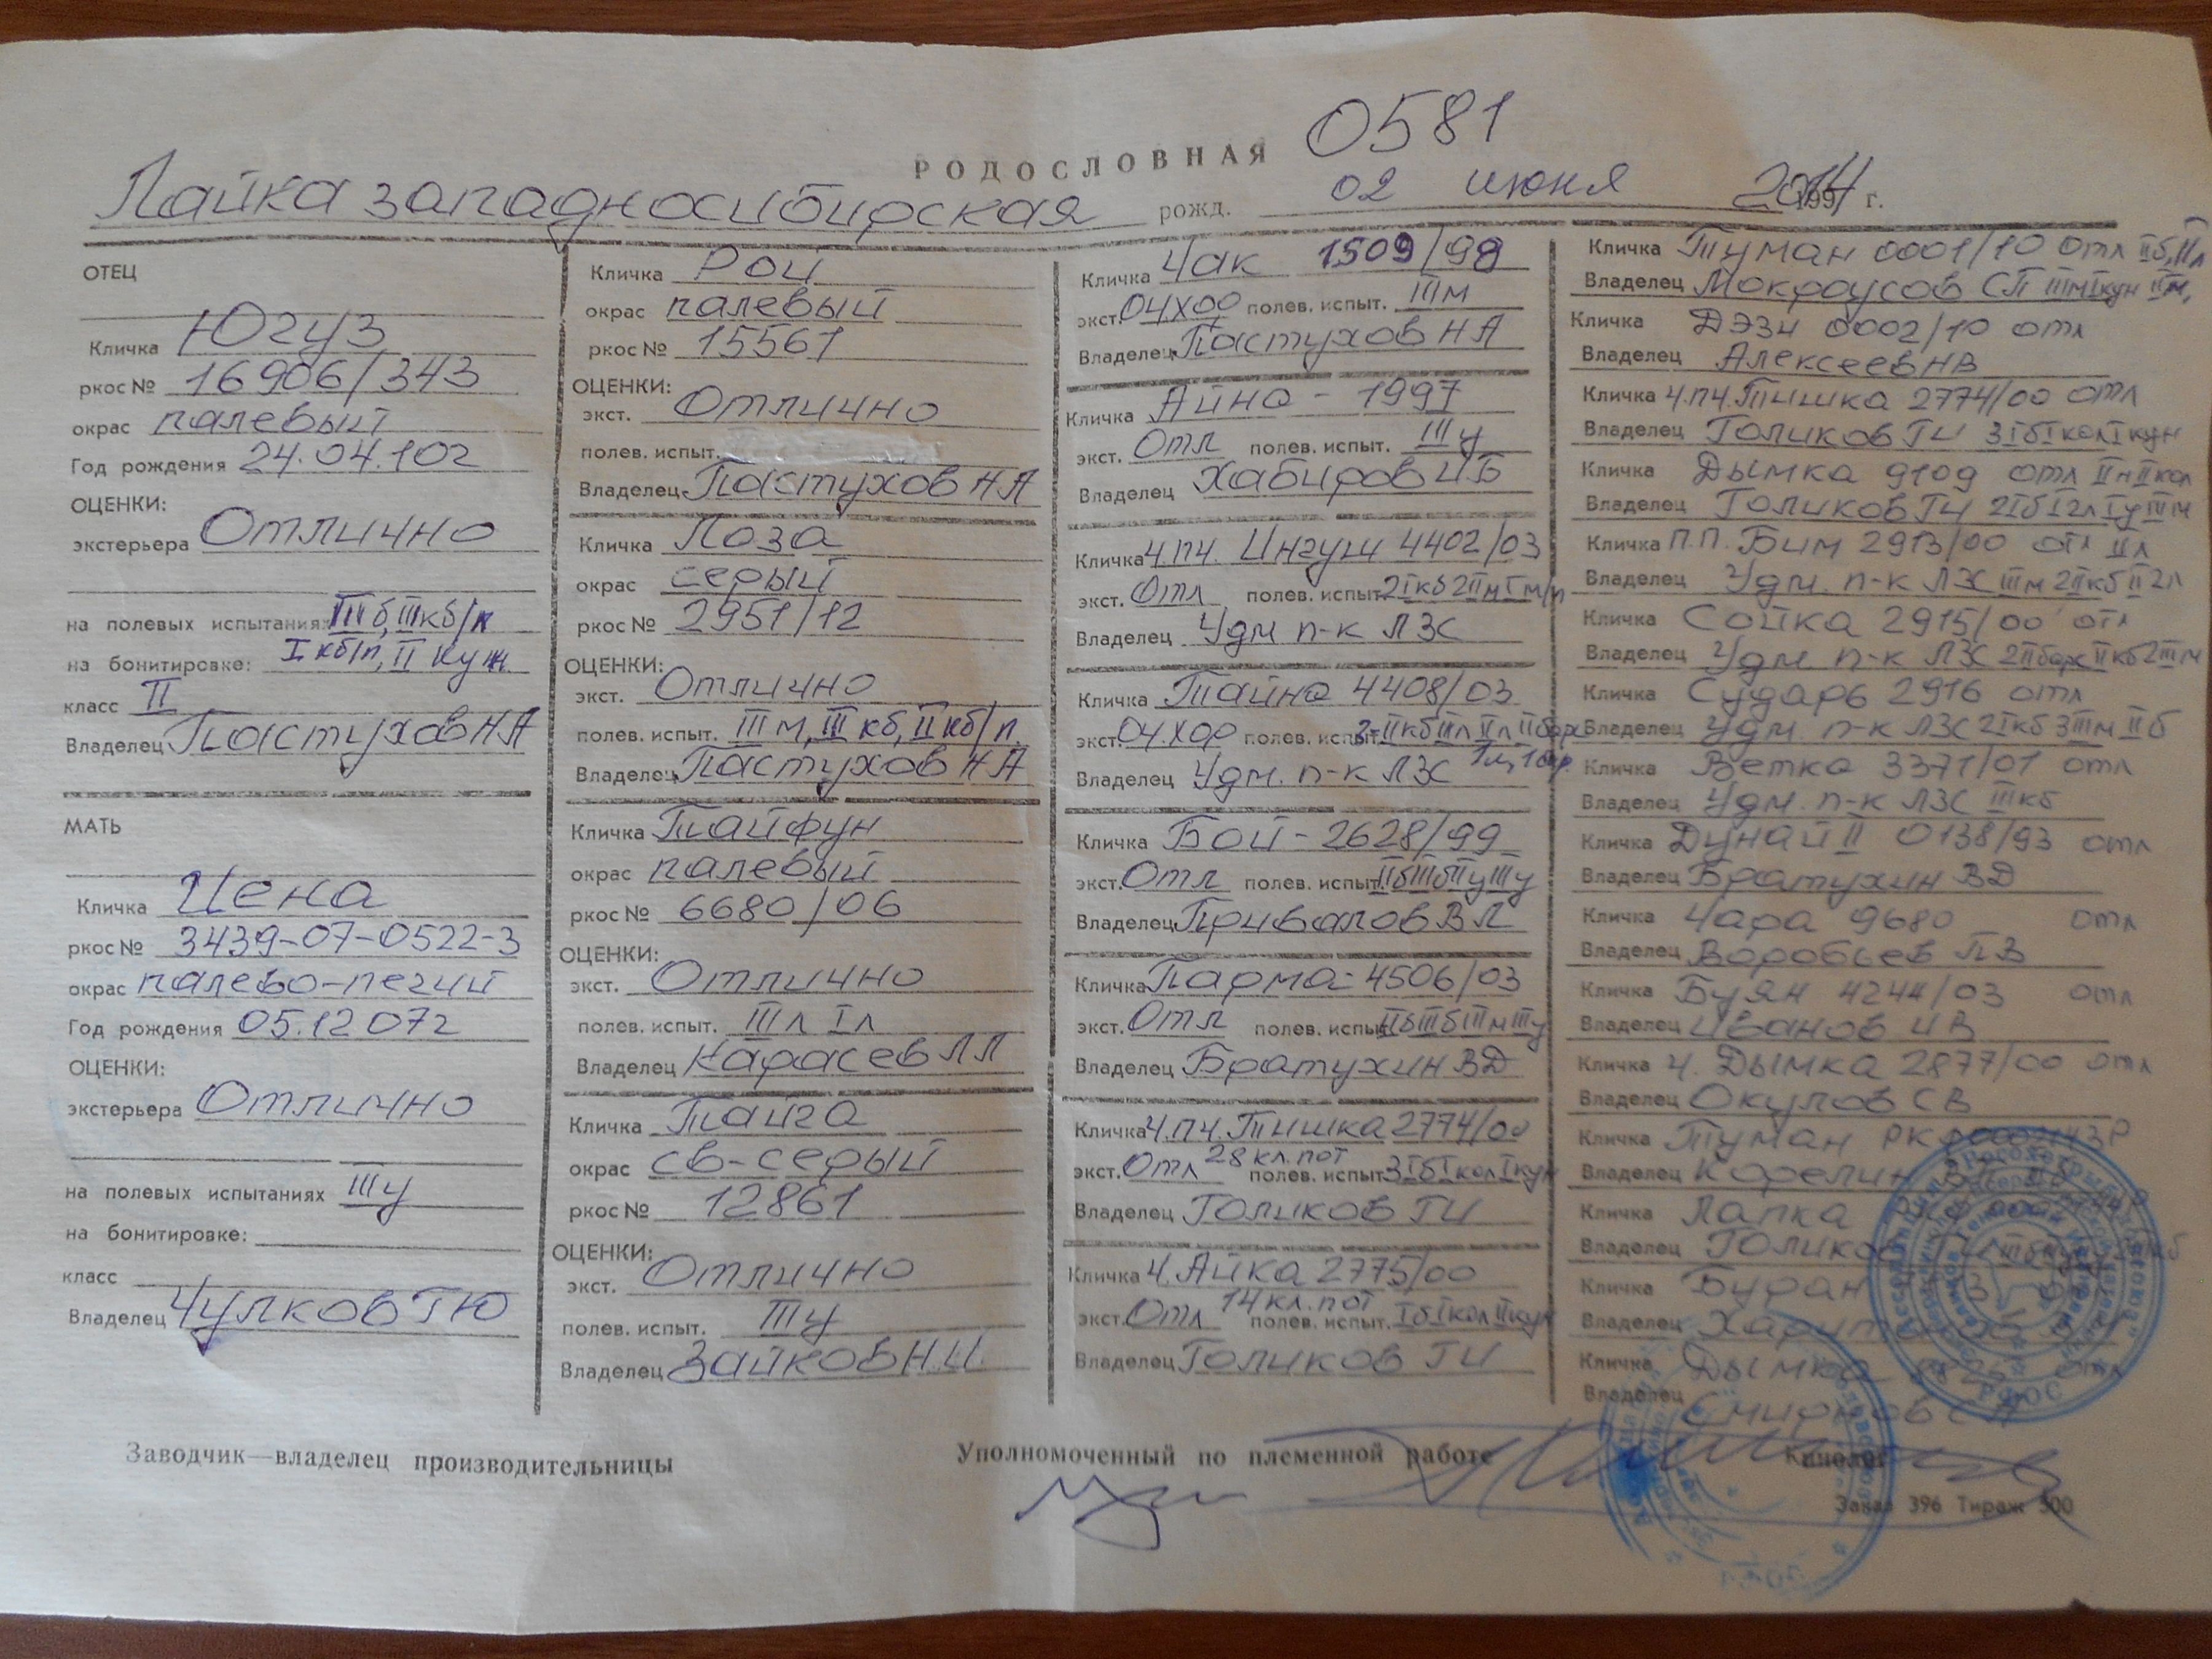 РОДОСЛОВНАЯ 0581
Лайка западносибирская рожд. 02 июня 2014 г.
ОТЕЦ
Кличка Югуз
ркос № 16906/343
окрас палевый
Год рождения 24.04.10г
ОЦЕНКИ:
экстерьера Отлично
на полевых испытаниях IIIб, IIIкб/п
на бонитировке: Iкб/п, II куж
класс II
Владелец Пастухов НА
МАТЬ
Кличка Цена
ркос № 3439-07-0522-3
окрас палево-пегий
Год рождения 05.12 07г
ОЦЕНКИ:
экстерьера Отлично
на полевых испытаниях IIIу
на бонитировке:
класс
Владелец Чулков ГЮ
Кличка Рой
окрас палевый
ркос № 15561
ОЦЕНКИ:
экст. Отлично
полев. испыт.
Владелец Пастухов НА
Кличка Лоза
окрас серый
ркос № 2951/12
ОЦЕНКИ:
экст. Отлично
полев. испыт. IIIм, III кб, II кб/п
Владелец Пастухов НА
Кличка Тайфун
окрас палевый
ркос № 6680/06
ОЦЕНКИ:
экст. Отлично
полев. испыт. IIIл Iл
Владелец Карасев ЛЛ
Кличка Тайга
окрас св-серый
ркос № 12861
ОЦЕНКИ:
экст. Отлично
полев. испыт. IIIу
Владелец Зайков Н.И.
Кличка Чак 1509/98
экст. ОЧХОР полев. испыт. IIIм
Владелец Пастухов НА
Кличка Айна - 1997
экст. Отл полев. испыт. IIIу
Владелец Хабиров ИБ
Кличка Ч.ПЧ. Ингуш 4402/03
экст. Отл полев. испыт. 2Iкб 2IIм Iм/п
Владелец Удм п-к ЛЗС
Кличка Тайна 4408/03
экст. ОЧХОР полев. испыт.
Владелец Удм. п-к ЛЗС
Кличка Бой - 2628/99
экст. Отл полев. испыт. IIбIIIбIIуIIIу
Владелец Привалов ВЛ
Кличка Парма - 4506/03
экст. Отл полев. испыт. IIбIIIбIIIмIIIу
Владелец Братухин ВД
Кличка Ч.ПЧ. Тишка 2774/00
экст. Отл 28 кл. пот полев. испыт. 3IбIколIкун
Владелец Голиков ГИ
Кличка Ч. Айка 2775/00
экст. Отл 14 кл. пот полев. испыт. IбIколIIкун
Владелец Голиков ГИ
Кличка Туман 0001/10 Отл IIб, IIл
Владелец Мокроусов СП IIIмIкун IIм,
Кличка Дэзи 0002/10 отл
Владелец Алексеев НВ
Кличка Ч.ПЧ. Тишка 2774/00 отл
Владелец Голиков ГИ 3IбIколIкун
Кличка Дымка 9109 отл IIнIIкол
Владелец Голиков ГИ 2IбI2лIуIIIм
Кличка П.П. Бим 2913/00 отл IIл
Владелец Удм. п-к ЛЗС IIIм 2IIкб II2л
Кличка Сойка 2915/00 отл
Владелец Удм п-к ЛЗС 2IIбарх IIкб 2IIIм
Кличка Сударь 2916 отл
Владелец Удм. п-к ЛЗС 2Iкб 3IIIм IIб
Кличка Ветка 3371/01 отл
Владелец Удм. п-к ЛЗС IIIкб
Кличка Дунай II 0138/93 отл
Владелец Братухин ВД
Кличка Чара 9680 отл
Владелец Воробьев ПВ
Кличка Буян 4244/03 отл
Владелец Иванов ИВ
Кличка Ч. Дымка 2877/00 отл
Владелец Окулов СВ
Кличка Туман
Владелец Корелин
Кличка Лапка
Владелец Голиков
Кличка Буран
Владелец
Кличка Дымка отл
Владелец Смирнов СА
Заводчик—владелец производительницы
Уполномоченный по племенной работе
Кинолог
Заказ 396 Тираж 500
РФОС